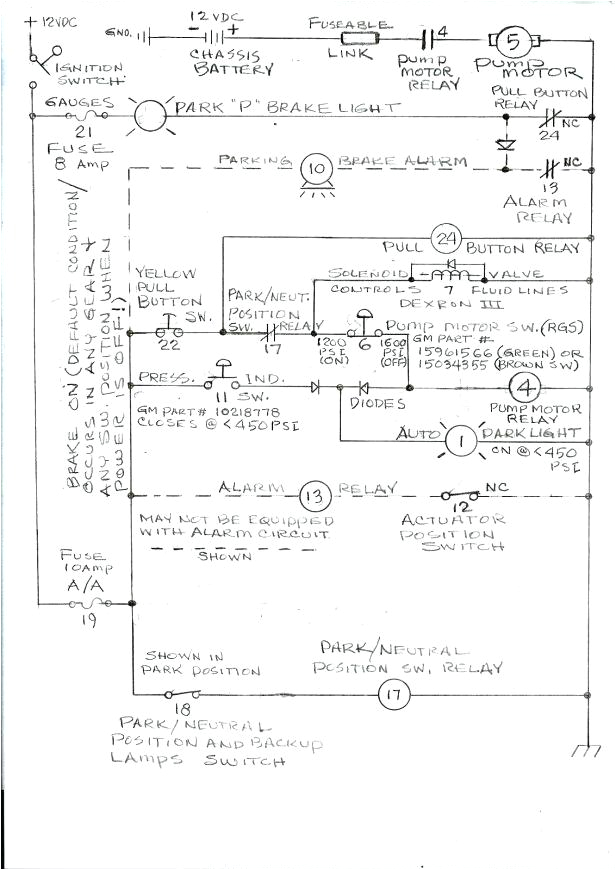 + 12VDC
GND.
12VDC
- +
CHASSIS
BATTERY
FUSEABLE
LINK
4
PUMP
MOTOR
RELAY
5
PUMP
MOTOR
IGNITION
SWITCH
GAUGES
21
FUSE
8 AMP
PARK "P" BRAKE LIGHT
PULL BUTTON
RELAY
NC
24
PARKING
10
BRAKE ALARM
NC
13
ALARM
RELAY
24
PULL BUTTON RELAY
BRAKE ON (DEFAULT CONDITION/
OCCURS IN ANY GEAR &
ANY SW. POSITION WHEN
POWER IS OFF!)
YELLOW
PULL
BUTTON
SW.
22
PARK/NEUT.
POSITION
SW. RELAY
17
SOLENOID VALVE
CONTROLS 7 FLUID LINES
DEXRON III
1200
PSI
(ON)
6
1600
PSI
(OFF)
PUMP MOTOR SW. (RGS)
GM PART #
15961566 (GREEN) OR
15034355 (BROWN SW)
PRESS. IND.
11 SW.
GM PART# 10218778
CLOSES @ < 450 PSI
DIODES
4
PUMP MOTOR
RELAY
AUTO
1
PARK LIGHT
ON @ < 450
PSI
ALARM
13
RELAY
NC
12
ACTUATOR
POSITION
SWITCH
MAY NOT BE EQUIPPED
WITH ALARM CIRCUIT
SHOWN
FUSE
10AMP
A/A
19
SHOWN IN
PARK POSITION
18
PARK/NEUTRAL
POSITION AND BACKUP
LAMPS SWITCH
PARK/NEUTRAL
POSITION SW. RELAY
17